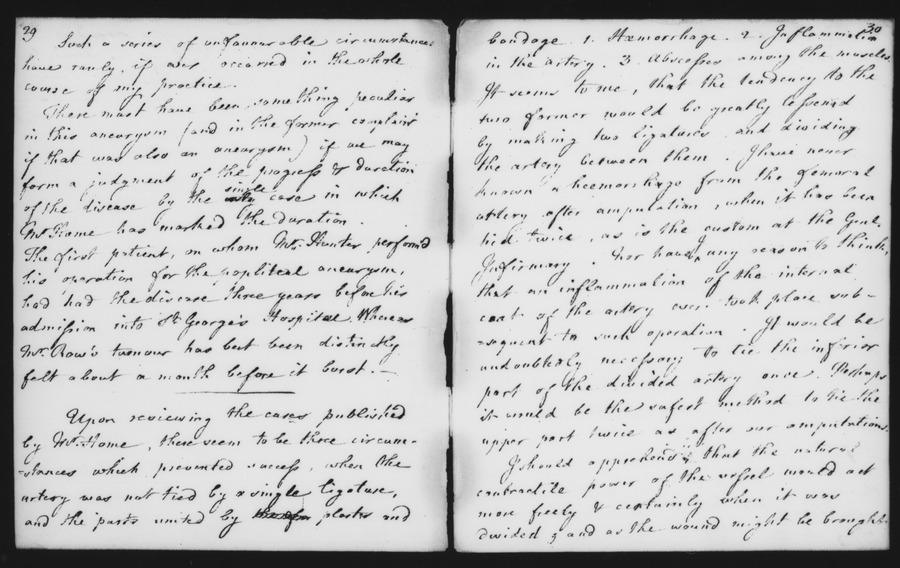 29
Such a series of unfavourable circumstances
have rarely, if ever occurred in the whole
course of my practice.
There must have been something peculiar
in this aneurysm (and in the former complaint
if that was also an aneurysm) if we may
form a judgment of the progress & duration
of the disease by the single case in which
Mr. Home has marked the duration.
The first patient, on whom Mr. Hunter perform'd
his operation for the popliteal aneurysm,
had had the disease three years before his
admission into St. George's Hospital. Whereas
Mr. Row's tumour has but been distinctly
felt about a month before it burst.—
Upon reviewing the cases published
by Mr. Home, there seem to be three circum-
-stances which prevented success, when the
artery was not tied by a single ligature,
and the parts united by plaster and
30
bandage. 1. Hæmorrhage. 2. Inflammation
in the artery. 3. Abscesses among the muscles.
It seems to me, that the tendency to the
two former would be greatly lessened
by making two ligatures and dividing
the artery between them. I have never
known a hæmorrhage from the femoral
artery after amputation, when it has been
tied twice, as is the custom at the Genl.
Infirmary. Nor have I any reason to think,
that an inflammation of the internal
coat of the artery ever took place sub-
-sequent to such operation. It would be
undoubtedly necessary to tie the inferior
part of the divided artery once. Perhaps
it would be the safest method to tie the
upper part twice as after our amputations.
I should apprehend that the natural
contractile power of the vessel would act
more freely & certainly when it was
divided; and as the wound might be brought